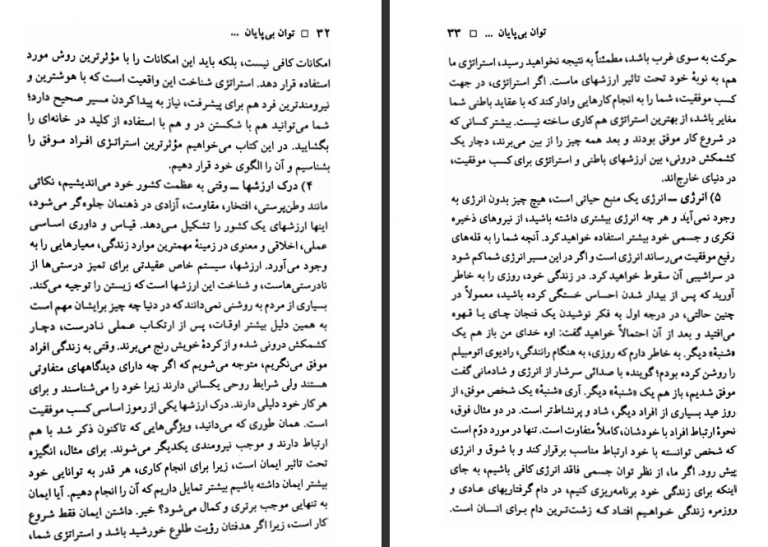 ۳۲ □ توان بی‌پایان ...
امکانات کافی نیست، بلکه باید این امکانات را با مؤثرترین روش مورد
استفاده قرار دهد. استراتژی شناخت این واقعیت است که با هوشترین و
نیرومندترین فرد هم برای پیشرفت، نیاز به پیدا کردن مسیر صحیح دارد؛
شما می‌توانید هم با شکستن در و هم با استفاده از کلید در خانه‌ای را
بگشایید. در این کتاب می‌خواهیم مؤثرترین استراتژی افراد موفق را
بشناسیم و آن را الگوی خود قرار دهیم.
۴) درک ارزشها ـ وقتی به عظمت کشور خود می‌اندیشیم، نکاتی
مانند وطن‌پرستی، افتخار، مقاومت، آزادی در ذهنمان جلوه‌گر می‌شود،
اینها ارزشهای یک کشور را تشکیل می‌دهد. قیاس و داوری اساسی
عملی، اخلاقی و معنوی در زمینهٔ مهمترین موارد زندگی، معیارهایی را به
وجود می‌آورد. ارزشها، سیستم خاص عقیدتی برای تمیز درستی‌ها از
نادرستی‌هاست، و شناخت این ارزشها است که زیستن را توجیه می‌کند.
بسیاری از مردم به روشنی نمی‌دانند که در دنیا چه چیز برایشان مهم است
به همین دلیل بیشتر اوقات، پس از ارتکاب عملی نادرست، دچار
کشمکش درونی شده و از کردهٔ خویش رنج می‌برند. وقتی به زندگی افراد
موفق می‌نگریم، متوجه می‌شویم که اگر چه دارای دیدگاههای متفاوتی
هستند ولی شرایط روحی یکسانی دارند زیرا خود را می‌شناسند و برای
هر کار خود دلیلی دارند. درک ارزشها یکی از رموز اساسی کسب موفقیت
است. همان طوری که می‌دانید، ویژگی‌هایی که تاکنون ذکر شد با هم
ارتباط دارند و موجب نیرومندی یکدیگر می‌شوند. برای مثال، انگیزه
تحت تاثیر ایمان است، زیرا برای انجام کاری، هر قدر به توانایی خود
بیشتر ایمان داشته باشیم بیشتر تمایل داریم که آن را انجام دهیم. آیا ایمان
به تنهایی موجب برتری و کمال می‌شود؟ خیر. داشتن ایمان فقط شروع
کار است، زیرا اگر هدفتان رؤیت طلوع خورشید باشد و استراتژی شما،
توان بی‌پایان ... □ ۳۳
حرکت به سوی غرب باشد، مطمئناً به نتیجه نخواهید رسید، استراتژی ما
هم، به نوبهٔ خود تحت تاثیر ارزشهای ماست. اگر استراتژی، در جهت
کسب موفقیت، شما را به انجام کارهایی وادار کند که با عقاید باطنی شما
مغایر باشد، از بهترین استراتژی هم کاری ساخته نیست. بیشتر کسانی که
در شروع کار موفق بودند و بعد همه چیز را از بین می‌برند، دچار یک
کشمکش درونی، بین ارزشهای باطنی و استراتژی برای کسب موفقیت،
در دنیای خارج‌اند.
۵) انرژی ـ انرژی یک منبع حیاتی است، هیچ چیز بدون انرژی به
وجود نمی‌آید و هر چه انرژی بیشتری داشته باشید، از نیروهای ذخیره
فکری و جسمی خود بیشتر استفاده خواهید کرد. آنچه شما را به قله‌های
رفیع موفقیت می‌رساند انرژی است و اگر در این مسیر انرژی شما کم شود
در سراشیبی آن سقوط خواهید کرد. در زندگی خود، روزی را به خاطر
آورید که پس از بیدار شدن احساس خستگی کرده باشید، معمولاً در
چنین حالتی، در درجه اول به فکر نوشیدن یک فنجان چای یا قهوه
می‌افتید و بعد از آن احتمالاً خواهید گفت: اوه خدای من باز هم یک
«شنبهٔ» دیگر. به خاطر دارم که روزی، به هنگام رانندگی، رادیوی اتومبیلم
را روشن کرده بودم؛ گوینده با صدائی سرشار از انرژی و شادمانی گفت
موفق شدیم، باز هم یک «شنبهٔ» دیگر. آری «شنبهٔ» یک شخص موفق، از
روز عید بسیاری از افراد دیگر، شاد و پرنشاط‌تر است. در دو مثال فوق،
نحوهٔ ارتباط افراد با خودشان، کاملاً متفاوت است. تنها در مورد دوّم است
که شخص توانسته با خود ارتباط مناسب برقرار کند و با شوق و انرژی
پیش رود. اگر ما، از نظر توان جسمی فاقد انرژی کافی باشیم، به جای
اینکه برای زندگی خود برنامه‌ریزی کنیم، در دام گرفتاریهای عادی و
روزمره زندگی خواهیم افتاد که زشت‌ترین دام برای انسان است.